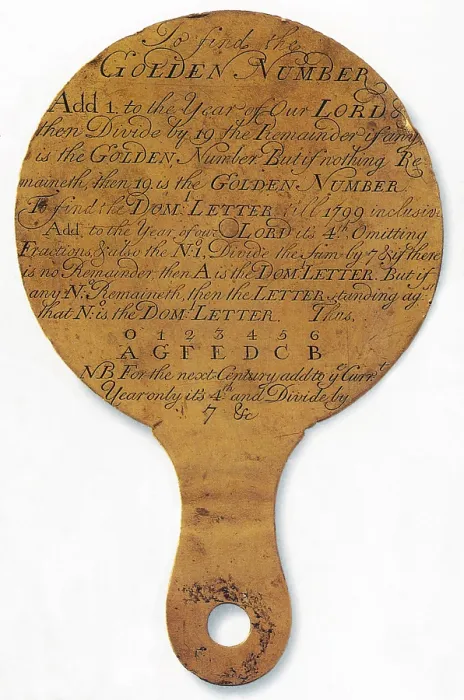 To find the
GOLDEN NUMBER
Add 1. to the Year of Our LORD &
then Divide by 19 the Remainder if any
is the GOLDEN Number. But if nothing Re=
maineth, then 19 is the GOLDEN NUMBER
To find the DOM:l LETTER till 1799 inclusive
Add, to the Year of our LORD it's 4th Omitting
Fractions, & also the No: 1, Divide the Sum by 7 & if there
is no Remainder then A is the DOM: LETTER. But if
any No: Remaineth, then the LETTER, standing ag:st
that No: is the DOM: LETTER. Thus,
0 1 2 3 4 5 6
A G F E D C B
NB. For the next Century add to ye Curr:t
Year only it's 4th and Divide by
7 &c